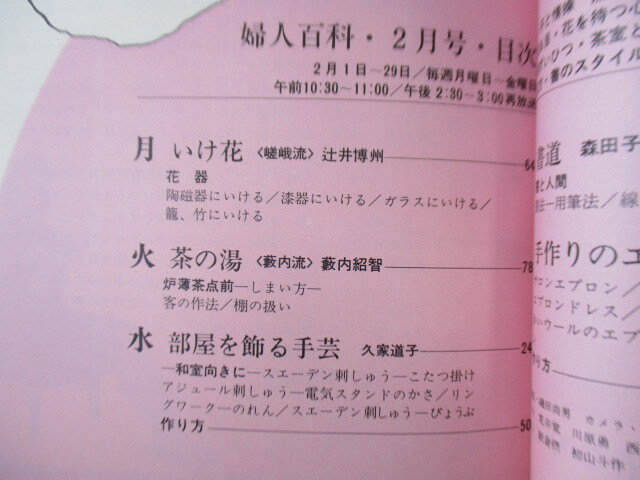 婦人百科・2月号・目次
2月1日〜29日/毎週月曜日〜金曜日
午前10:30〜11:00/午後2:30〜3:00再放送
月 いけ花〈嵯峨流〉辻井博州 64
花器
陶磁器にいける/漆器にいける/ガラスにいける/
籠、竹にいける
火 茶の湯〈藪内流〉藪内紹智 78
炉薄茶点前—しまい方—
客の作法/棚の扱い
水 部屋を飾る手芸 久家道子 24
—和室向きに—スエーデン刺しゅう—こたつ掛け
アジュール刺しゅう—電気スタンドのかさ/リン
グワーク—のれん/スエーデン刺しゅう—びょうぶ
作り方 50
・花を待つ心
ひつ・茶室と
・書のスタイル
書道 森田子
と人間
法—用筆法/線
手作りのエ
ロンエプロン/
エプロンドレス/
ウールのエプ
作り方
カメラ・
川原勇 西
初山斗作